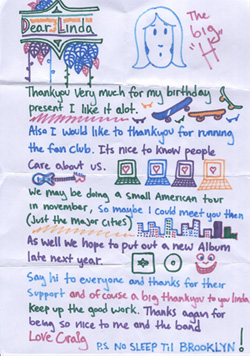 Dear Linda
The big "H"
Thankyou Very much for my birthday
present I like it alot.
Also I would like to thankyou for running
the fan club. Its nice to know people
care about us.
We may be doing a small American tour
in november, so maybe I could meet you then
(Just the Major cites)
As well we hope to put out a new Album
late next year.
Say hi to everyone and thanks for their
Support and of couse a big thankyou to you linda
Keep up the good work. Thanks again for
being so nice to me and the band
Love Craig P.S NO SLEEP Til BROOKLYN!